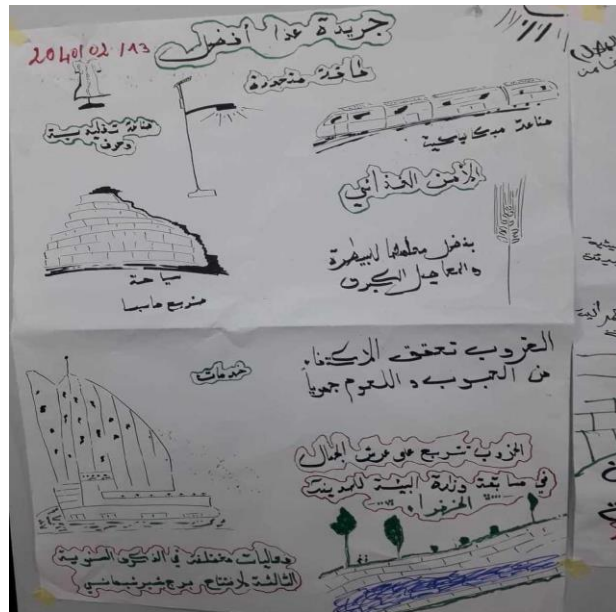 جريدة غدا أفضل
2040/02/13
طاقة متجددة
صناعة تقليدية
وحرف
صناعة ميكانيكية
الأمن الغذائي
بفضل معلمها للبيطرة
والمعاصيل الكبرى
سياحة
ضريح ماسينيسا
الخروب تحقق الاكتفاء
من الحبوب و اللحوم جهويا
خدمات
الخروب تتربع على عرش الجمال
في مسابقة وزارة البيئة للمدينة
الخضراء
فعاليات مختلفة في الذكرى السنوية
الثالثة لإفتتاح برج